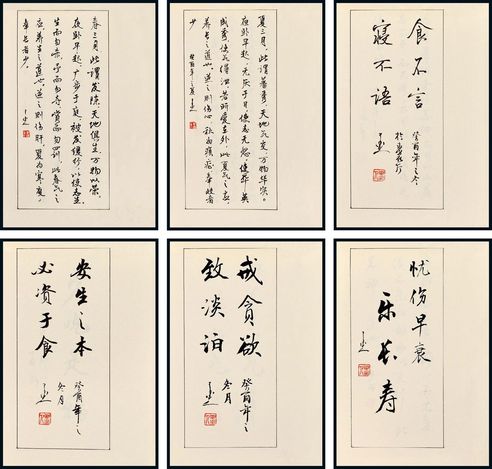 春三月，此谓发陈。天地俱生，万物以荣。
夜卧早起，广步于庭，被发缓行，以使志生
生而勿杀，予而勿夺，赏而勿罚，此春气之
应养生之道也。逆之则伤肝，夏为寒变，
奉长者少。
夏三月，此谓蕃秀，天地气交，万物华实。
夜卧早起，无厌于日，使志无怒，使华英
成秀，使气得泄，若所爱在外，此夏气之应，
养长之道也。逆之则伤心，秋为痎疟，奉收者
少
癸酉年之夏
食不言
寝不语
癸酉年之冬
安生之本
必资于食
癸酉年之
冬月
戒贪欲
致淡泊
癸酉年之
冬月
忧伤早衰
乐长寿